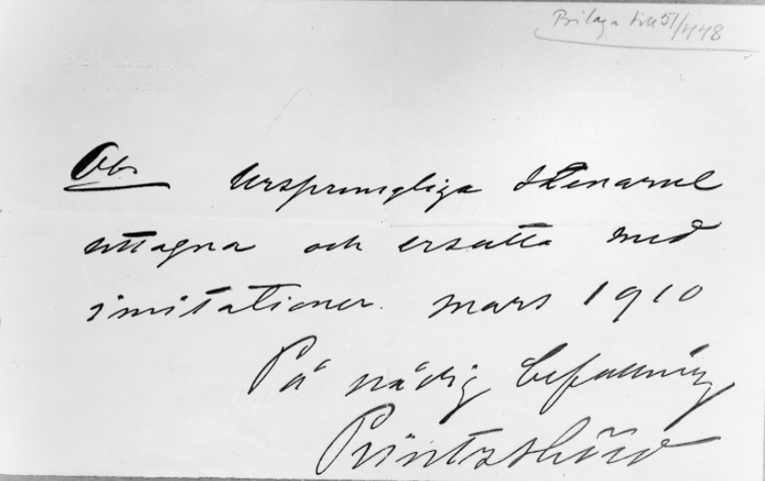 Bilaga till 51/1448
Obs Ursprungliga stenarne
uttagna och ersatta med
imitationer. mars 1910
På nådig befallning
Printzsköld